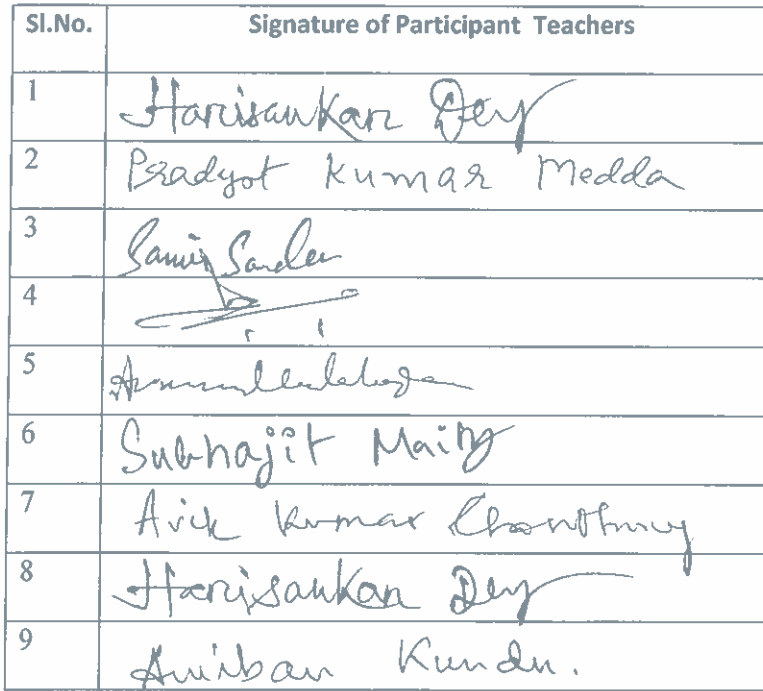 Sl.No. Signature of Participant Teachers
1 Harisankar Dey
2 Pradyot Kumar Medda
3 Samir
4
5
6 Subhajit Maity
7 Avik Kumar Chowdhury
8 Harisankar Dey
9 Anirban Kundu.